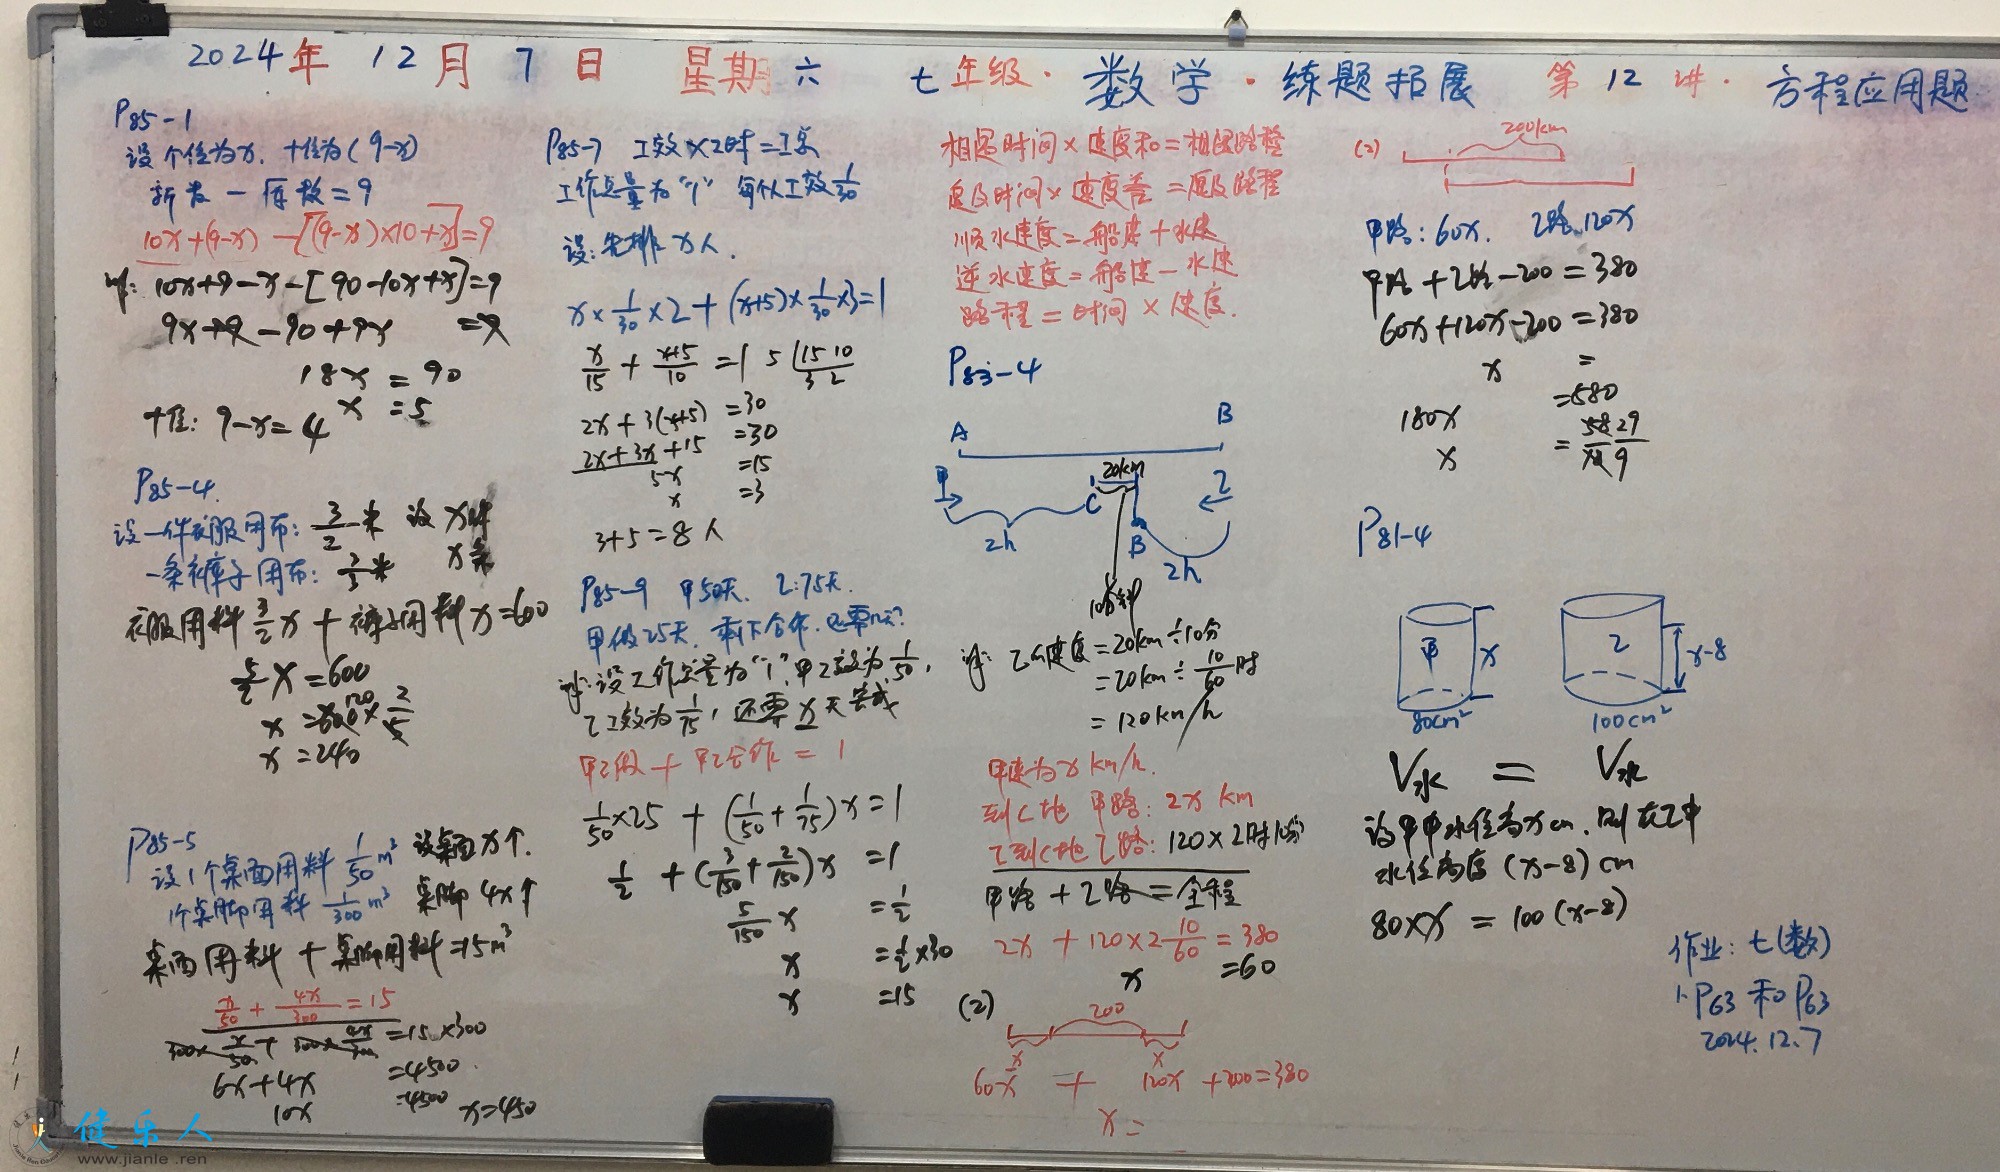 2024年 12月 7日 星期六 七年级·数学·练题拓展 第12讲·方程应用题
P85-1
设个位为x. 十位为(9-x)
新数-原数=9
10x+(9-x)-[(9-x)×10+x]=9
10x+9-x-[90-10x+x]=9
9x+9-90+9x =9
18x=90
x=5
十位: 9-x=4
P85-4.
设一件衣服用布: 3/2米 设x件
一条裤子用布: 米 x条
衣服用料3/2x+裤子用料x=600
5/2x=600
x=600×2/5
x=240
P85-5
设1个桌面用料1/50m³ 设桌面x个.
1个桌脚用料1/300m³ 桌脚4x个
桌面用料+桌脚用料=15m³
x/50+4x/300=15
300×x/50+300×4x/300=15×300
6x+4x=4500
10x=4500 x=450
P85-7 工效×工时=工总
工作总量为"1" 每人工效1/30
设:先排x人.
x×1/30×2+(x+5)×1/30×3=1
x/15+x+5/10=1 5 15 10
3 2
2x+3(x+5)=30
2x+3x+15=30
5x=15
x=3
3+5=8人
P85-9 甲50天. 乙:75天.
甲做25天. 剩下合作. 还要几天?
设工作总量为"1",甲工效为1/50,
乙工效为1/75,还需x天完成
甲做+甲乙合作=1
1/50×25+(1/50+1/75)x=1
1/2+(3/150+2/150)x=1
5/150x=1/2
x=1/2×30
x=15
相遇时间×速度和=相遇路程
追及时间×速度差=追及路程
顺水速度=船速+水速
逆水速度=船速-水速
路程=时间×速度.
P83-4
A B
甲 C 20km 乙
2h B 2h
10分钟
乙的速度=20km÷10分
=20km÷10/60时
=120km/h
甲速为x km/h.
到C地 甲路: 2x km
乙到C地乙路: 120×2时10分
甲路+乙路=全程
2x+120×2 10/60=380
x=60
(2)
200
x x
60x+120x+200=380
x=
(2) 200km
甲路:60x. 乙路.120x
甲路+乙路-200=380
60x+120x-200=380
x =
180x =580
x =58/18 29/9
P81-4
甲 x 乙 x-8
80cm² 100cm²
V水 = V水
设甲中水位高xcm.则在乙中
水位高度(x-8)cm
80×x=100(x-8)
作业:七(数)
P63和P63
2024.12.7
健乐人
www.jianle.ren